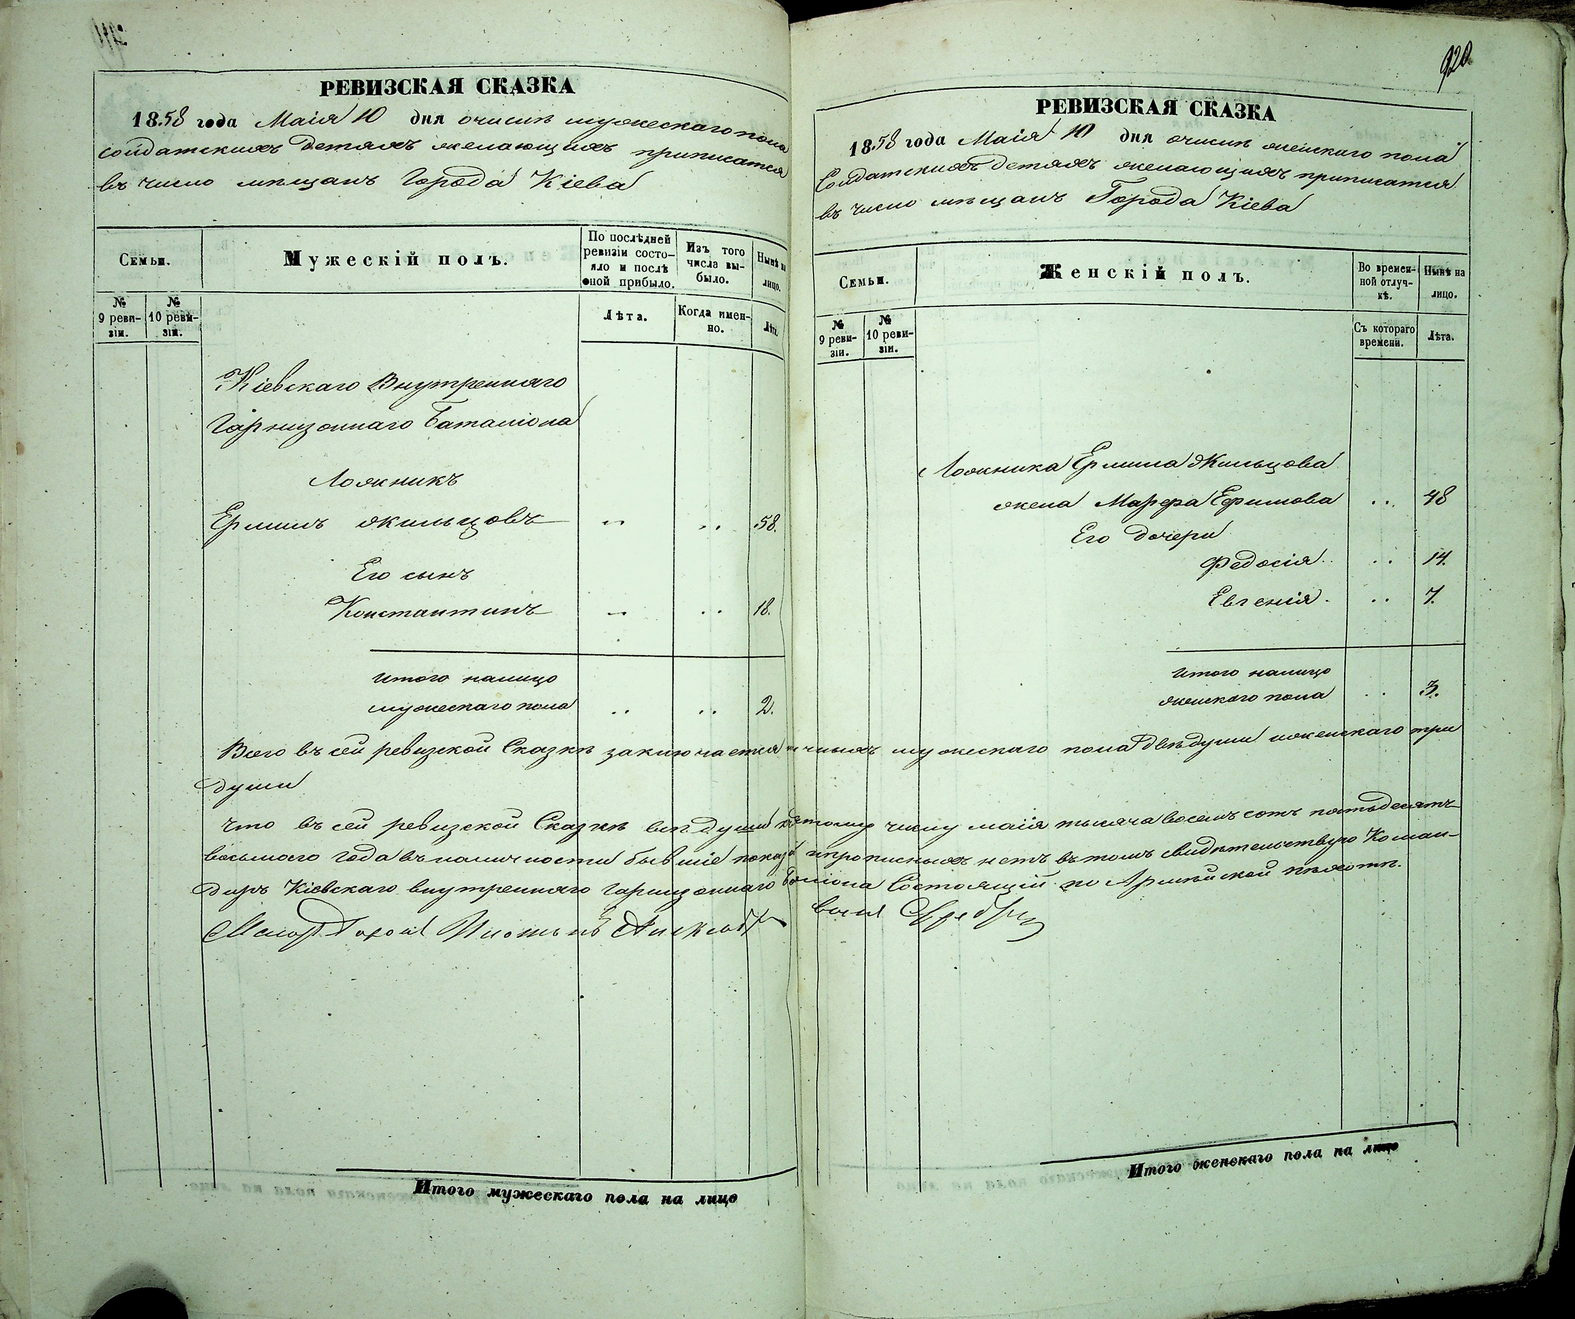 920
РЕВИЗСКАЯ СКАЗКА
1858 года Маія 10 дня о числѣ мужескаго пола
солдатскихъ детяхъ желающихъ приписатся
въ число мѣщанъ Города Кіева
Семьи.
Мужескій полъ.
По послѣдней ревизіи состояло и послѣ оной прибыло.
Изъ того числа выбыло.
Нынѣ на лицо.
№ 9 ревизіи.
№ 10 ревизіи.
Лѣта.
Когда именно.
Лѣта.
Кіевскаго Внутренняго
Гарнизоннаго Баталіона
Ложникъ
Ермилъ Жильцовъ 58.
Его сынъ
Константинъ 18.
Итого налицо
мужескаго пола 2.
РЕВИЗСКАЯ СКАЗКА
1858 года Маія 10 дня о числѣ женскаго пола
Солдатскихъ детяхъ желающихъ приписатся
въ число мѣщанъ Города Кіева
Семьи.
Женскій полъ.
Во временной отлучкѣ.
Нынѣ на лицо.
№ 9 ревизіи.
№ 10 ревизіи.
Съ котораго времени.
Лѣта.
Ложника Ермила Жильцова
жена Марфа Ефимова 48
Его дочери
Федосія 14.
Евгенія 7.
Итого налицо
женскаго пола 3.
Всего въ сей ревизской Сказкѣ заключается мужескаго пола двѣ души и женскаго три
души
Что въ сей ревизской Сказкѣ всѣ души числу маія тысяча восемь сотъ пятьдесятъ
восьмого года въ наличности бывшіе показ прописныхъ нетъ въ томъ свидѣтельствую Коман-
диръ Кіевскаго внутренняго гарнизоннаго Состоящій по Армѣйской пѣхотѣ.
Итого мужескаго пола на лицо
Итого женскаго пола на лицо